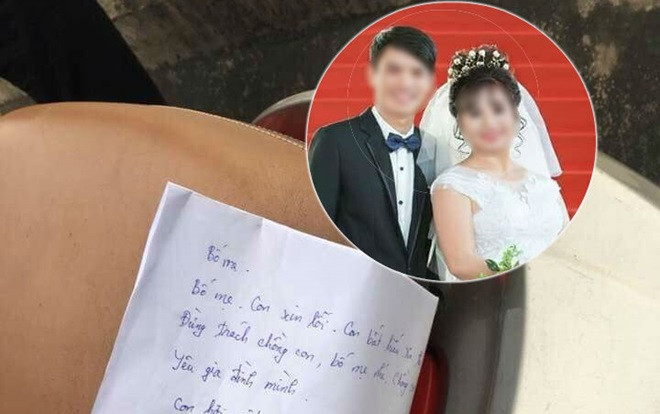 Bố mẹ.
Bố mẹ. Con xin lỗi. Con bất hiếu. Xin
Đừng trách chồng con, bố mẹ nhé, chồng
Yêu gia đình mình.
Con